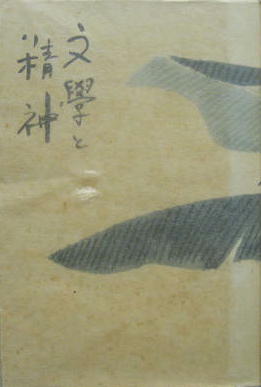 文學と
精神